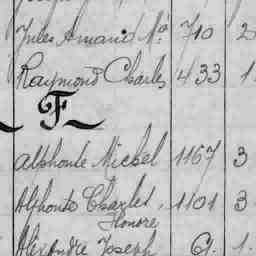 Jules Amand Mce 710 2
Raymond Charles 433 1
F
Alphonse Michel 1167 3
Alphonse Charles, 1101 3
Honore
Alexandre Joseph G. 1.